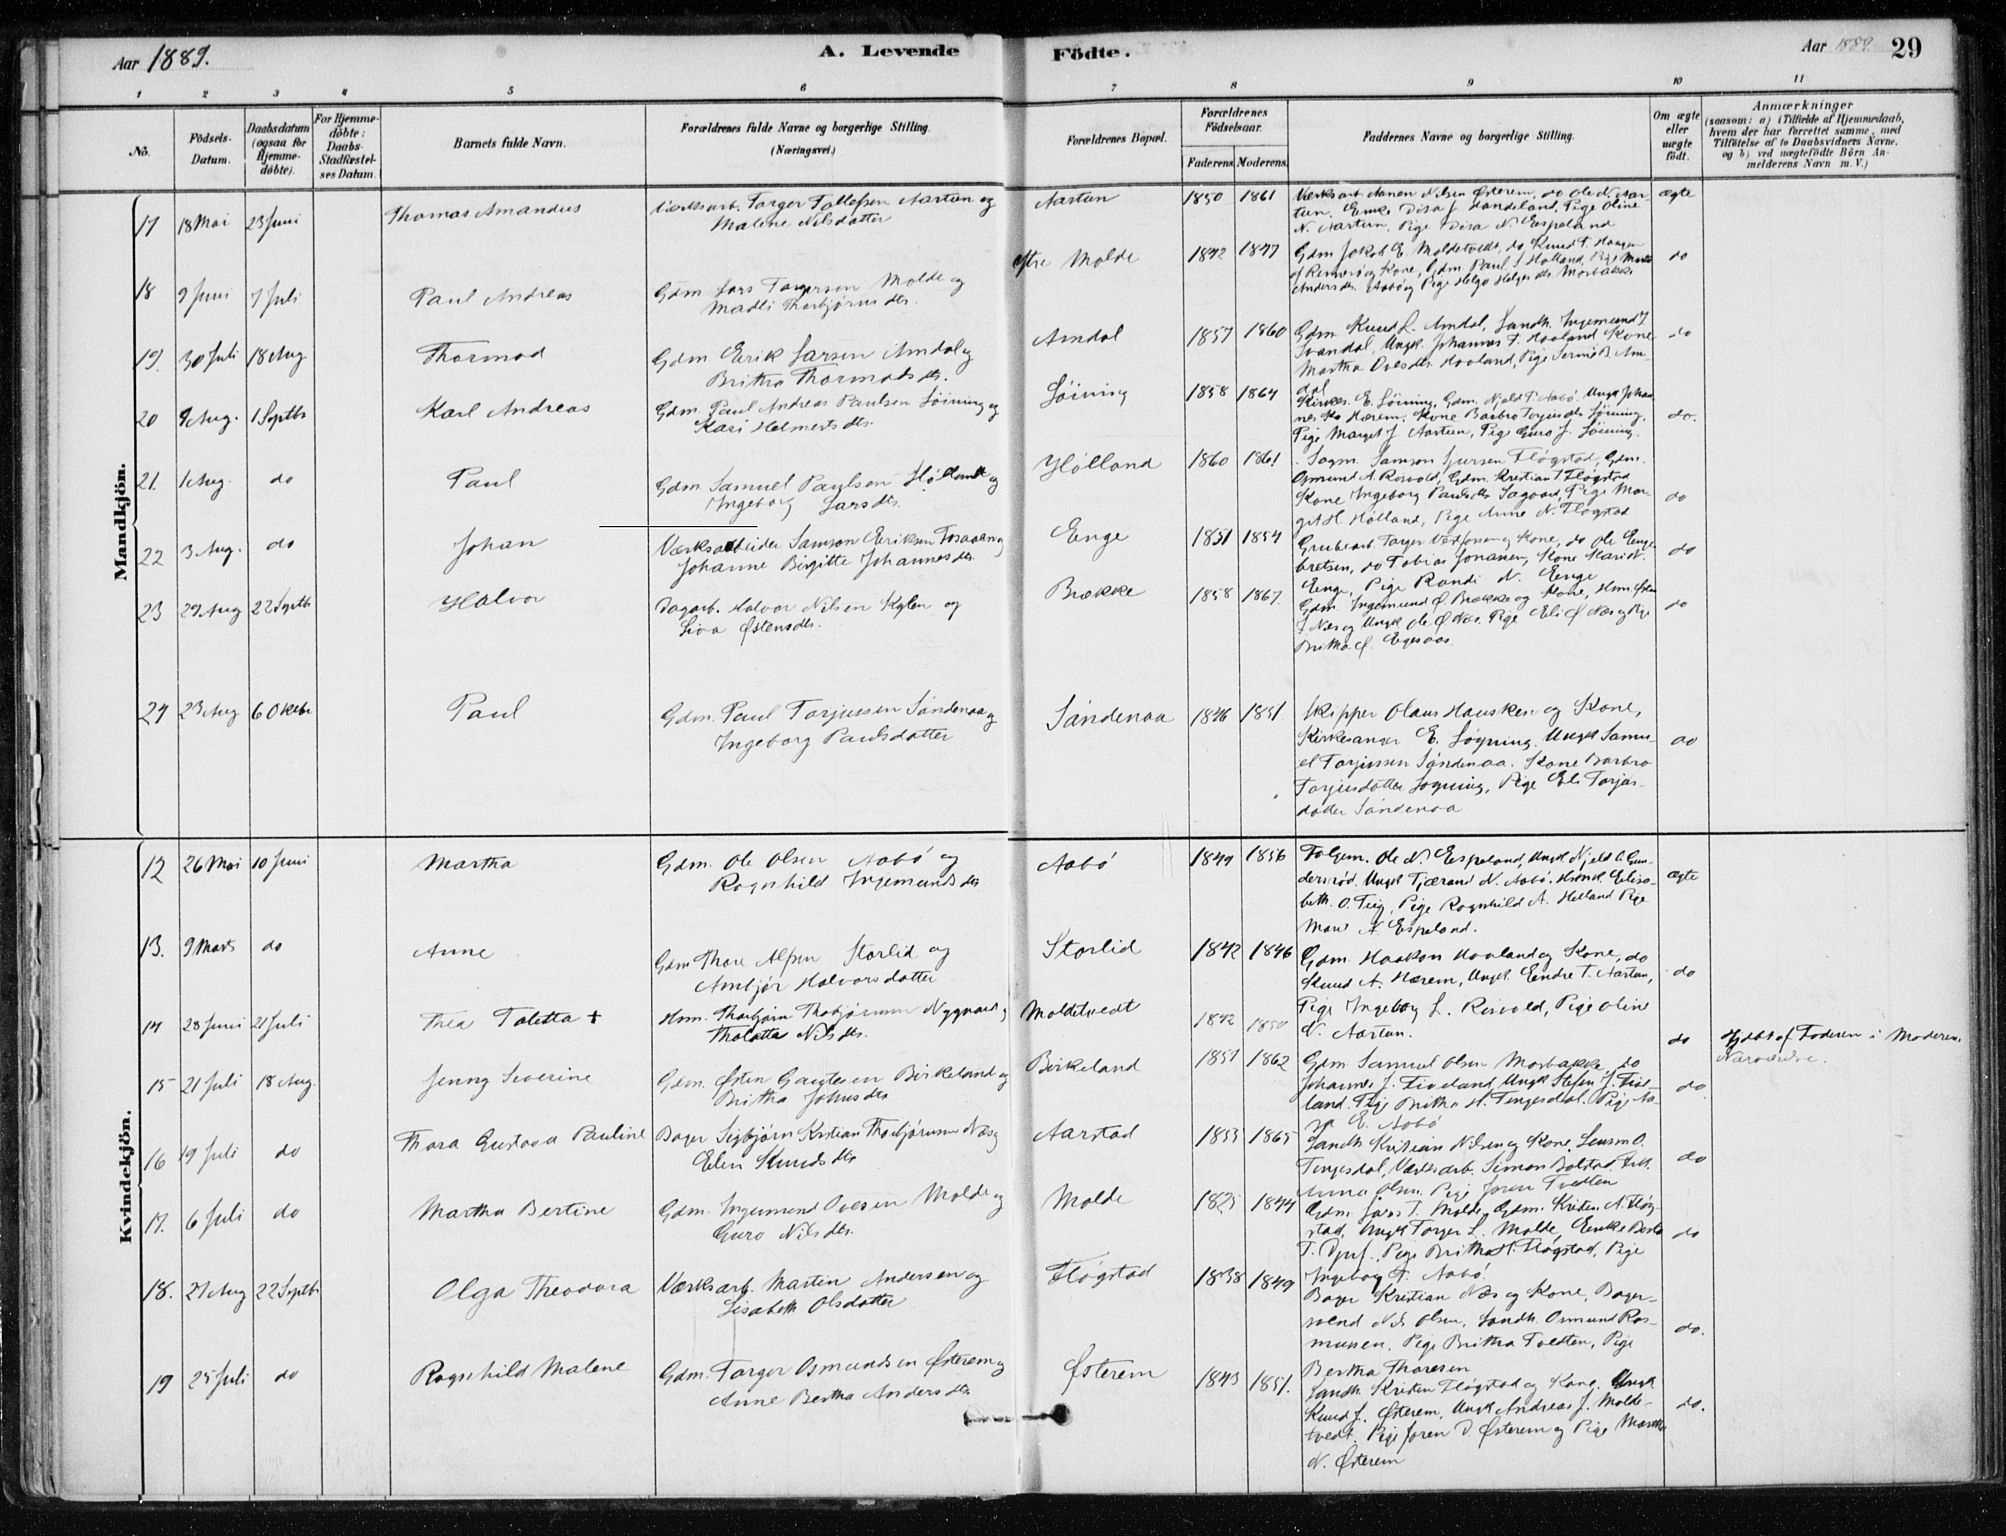 Aar 1889.
A. Levende Födte.
Aar 1889. 29
1 2 3 4 5 6 7 8 9 10 11
No.
Födsels-Datum.
Daabsdatum (ogsaa for Hjemme-döbte).
For Hjemme-döbte: Daabs-Stadfæstel-ses Datum.
Barnets fulde Navn.
Forældrenes fulde Navne og borgerlige Stilling. (Næringsvei.)
Forældrenes Bopæl.
Forældrenes Födselsaar.
Faderens. Moderens.
Faddernes Navne og borgerlige Stilling.
Om ægte eller uægte födt.
Anmærkninger
(saasom: a) i Tilfælde af Hjemmedaab,
hvem der har forrettet samme, med
Tilföielse af to Daabsvidners Navne,
og b) ved uægtefödte Börn An-
melderens Navn m. V.)
Mandkjön.
17 18 Mai 23 Juni Thomas Amandus
Værksarb. Torger Tollefsen Aartun og
Malene Nilsdatter
Aartun 1850 1861
Værksarb. Aanen Nilsen Østerem, do Ole N. Aar-
tun, Enke Disa J. Handeland, Pige Oline
N. Aartun, Pige Disa N. Espeland
ægte
18 9 Juni 7 Juli Paul Andreas
Gdm Lars Torgersen Molde og
Madli Thorbjørns dtr.
Molde 1842 1847
Gdm Jakob E. Moldetvedt, do Knud T. Haagen
og Kone, Gdm. Paul J. Holland, Pige
Anders dtr. Aabø og Pige Helga Helges dtr. Morbakke
do
19. 30 Juli 18 Aug. Thormod
Gdm. Eerik Larsen Amdal og
Brittha Thormods dtr.
Amdal 1857 1860
Gdm. Knud L. Amdal, Landh. Ingemund J.
Svandal, Ungk. Johannes T. Hovland, Kone
Martha Oves dtr. Hovland, Pige Serine B. Am-
dal
do
20 9 Aug. 1 Septbr Karl Andreas
Gdm. Paul Andreas Paulsen Løining og
Kari Helmerts dtr.
Løining 1858 1864
Kirkes. E. Løining, Gdm. Njeld T. Aabø. Ungk Johan
nes K. Hærem. Kone Barbro Torjusdtr Løining,
Pige Marget J. Aartun, Pige Guro J. Løining.
do.
21. 1 Aug. do Paul
Gdm Samuel Paulsen Hølland og
Ingeborg Lars dtr.
Hølland 1860 1861
Sagm. Samson Sjursen Fløgstad, Gdm.
Osmund A. Rosvold, Gdm. Kristian T. Fløgstad
Kone Ingeborg Paulsdtr Sagaard, Pige Mar-
git H. Hølland, Pige Anne N. Fløgstad
do
22 3 Aug. do Johan
Værksarbeider Samson Eeriksen Fosaaen og
Johanne Birgitte Johannesdtr
Eenge 1851 1854
Grubearb. Torger Vetjonsen og Kone, do Ole Enge-
bretsen, do Tobias Jonassen, Kone Kari N.
Eenge, Pige Randi N. Eenge
do
23 29 Aug 22 Septbr Halvor
Dagarb. Halvor Nilsen Kylen og
Siva Østensdtr.
Brække 1858 1867
Gdm. Ingemund Ø. Brække og Kone, Hsm. Østen
J. Næs og Ungk Ole Ø. Næs. Pige Eli Ø. Næs og Pige
Brittha Ø. Egesaas
do
24 23 Aug 6 Oktbr Paul
Gdm. Paul Torjussen Søndenaa og
Ingeborg Paulsdatter
Søndenaa 1846 1851
Skipper Olaus Hausken og Kone,
Kirkesanger E. Løyning. Ungk Samu-
el Torjussen Søndenaa. Kone Barbro
Torjusdatter Løyning, Pige Eli Torjus-
datter Søndenaa
do
Kvindekjön.
12 26 Mai 10 Juni Martha
Gdm. Ole Olsen Aabø og
Ragnhild Ingemunds dtr
Aabø 1849 1856
Folgem. Ole N. Eespeland, Ungk Njeld O. Gun-
dersrød. Ungk Tjærand N. Aabø. Elisa-
beth O. Teig, Pige Ragnhild A. Helland Pige
Mari N. Espeland.
ægte
13. 9 Marts do Anne
Gdm Thore Alfsen Storlid og
Anbjør Halvorsdatter
Storlid 1842 1846
Gdm. Haakon Hovland og Kone, do
Knud A. Hærem, Ungk. Eendre T. Aartun,
Pige Ingeborg L. Rosvold, Pige Oline
N. Aartun.
do
14 28 Juni 21 Juli Thea Taletta +
Hsm. Thorbjørn Thobjørnsen Nygaard og
Tholetta Nils dtr.
Moldetvedt 1842 1850
do
Hjdbt af Faderen i Moderens
Nærværelse.
15 21 Juli 18 Aug. Jenny Severine
Gdm. Østen Gautesen Birkeland og
Brittha Johns dtr
Birkeland 1851 1862
Gdm Samuel Olsen Morbakke, do
Johannes J. Fiveland, Ungk Stefen J. Five-
land. Pige Brittha H. Tengesdal. Pige Aa-
sa E. Aabø
do
16 19 Juli do Thora Gustava Pauline
Bager Sigbjørn Kristian Thorbjørnsen Næs og
Elen Knuds dtr
Aarstad 1855 1865
Landh. Kristian Nilsen og Kone, Lensm O.
Tengesdal, Værksarb. Simon Bolstad.
Anna Olsen. Pige Joren Tvedten
do
17. 6 Juli do Martha Bertine
Gdm. Ingemund Ovesen Molde og
Guro Nils dtr.
Molde 1825 1844
Gdm. Lars T. Molde, Gdm. Kristen A. Fløg-
stad, Ungk Torger L. Molde, Eenke Berta
T. Djuf. Pige Brittha H. Fløgstad, Pige
Ingeborg T. Aabø.
do
18. 27 Aug 22 Septbr Olga Theodora
Værksarb. Martin Andersen og
Lisabeth Olsdatter
Fløgstad 1838 1849
Bager Kristian Næs og Kone, Bager-
svend Nils Olsen, Landh. Osmund Ras-
mussen, Pige Brittha Tvedten, Pige
Bertha Thoresen
do.
19 25 Juli do Ragnhild Malene
Gdm. Torger Osmundsen Østerem og
Anne Bertha Anders dtr.
Østerem 1843 1851.
Landh. Kristen Fløgstad og Kone. Ungk
Knud J. Østerem, Ungk Andreas J. Molde-
tvedt. Pige Joren D. Østerem og Pige Martha
N. Østerem
do.